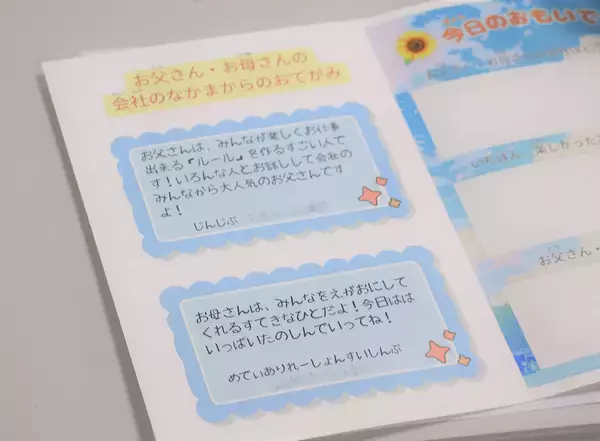 お父さん・お母さんの
会社のなかまからのおてがみ
お父さんは、みんなが楽しくお仕事
出来る『ルール』を作るすごい人で
す！いろんな人とお話しして会社の
みんなから大人気のお父さんです
よ！
じんじぶ
お母さんは、みんなをえがおにして
くれるすてきなひとだよ！今日はは
いっぱいたのしんでいってね！
めでぃありれーしょんすいしんぶ
今日のおもいで
いちばん 楽しかった
お父さん・